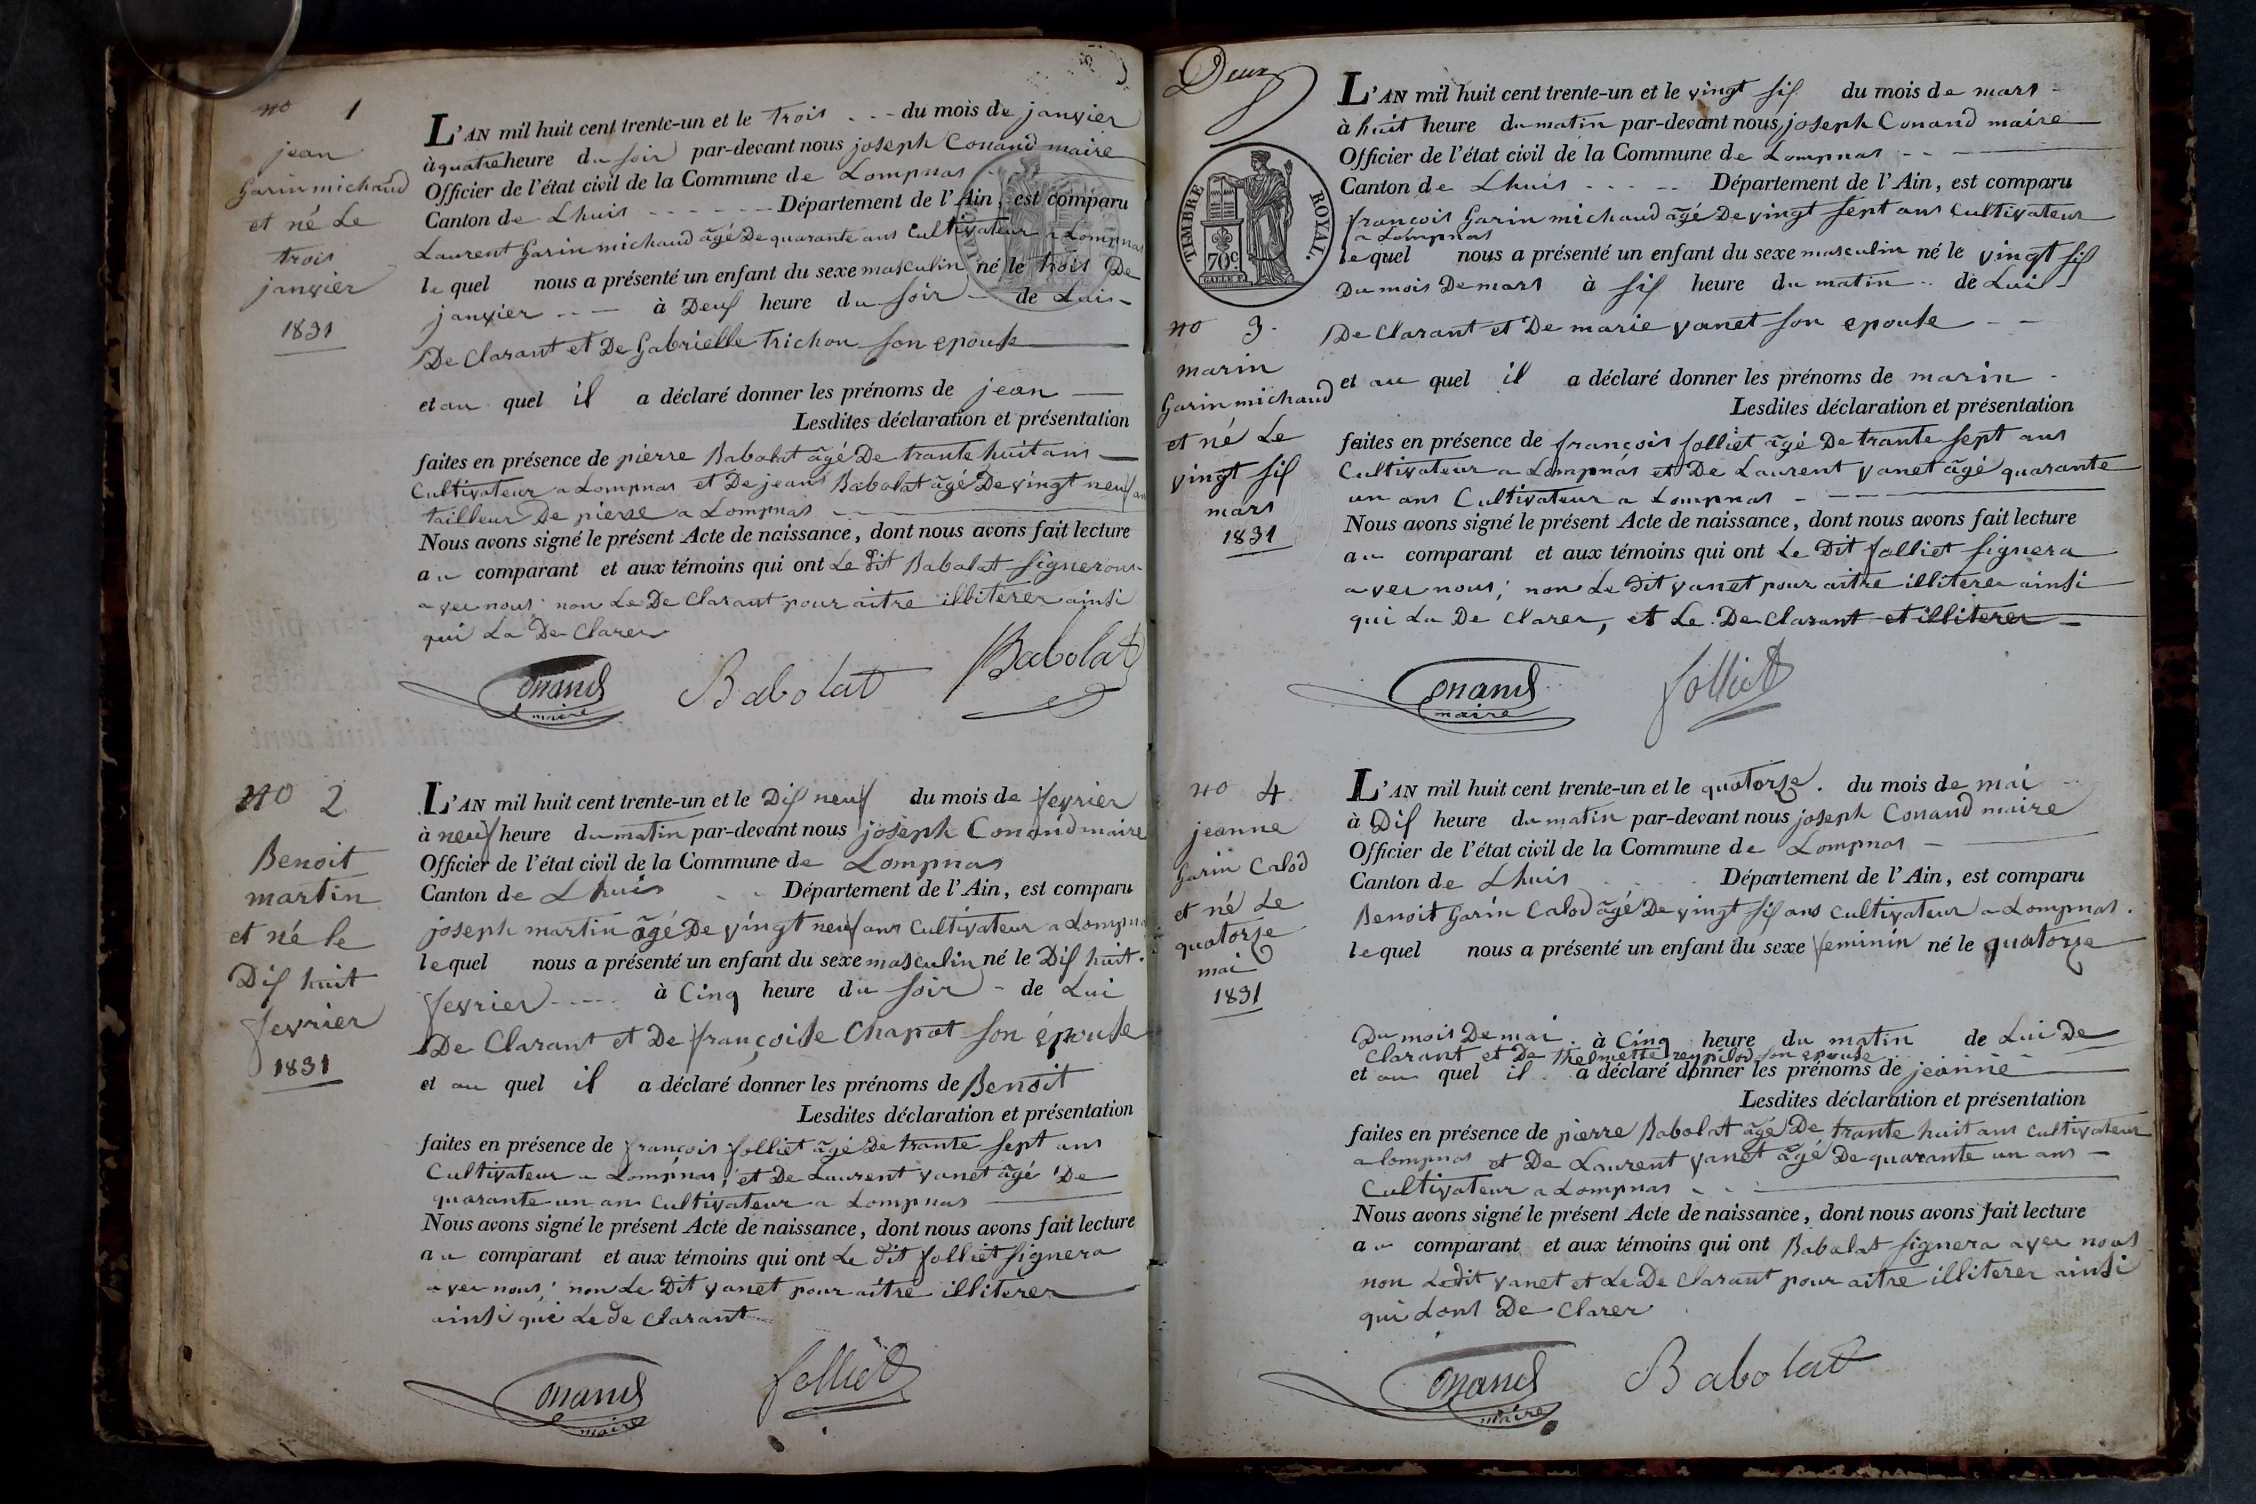 no 1
jean
Garin michaud
et né Le
trois
janvier
1831
L'AN mil huit cent trente-un et le trois du mois de janvier
à quatre heure du soir par-devant nous joseph Conand maire
Officier de l'état civil de la Commune de Lompnas
Canton de Lhuis Département de l'Ain, est comparu
Laurent Garin michaud âgé De quarante ans Cultivateur a Lompnas
lequel nous a présenté un enfant du sexe masculin né le trois De
janvier à Deux heure du soir de Lui
De Clarant et De Gabrielle trichon son epouse
et au quel il a déclaré donner les prénoms de jean
Lesdites déclaration et présentation
faites en présence de pierre Babolat âgé De trante huit ans
Cultivateur a Lompnas et De jean Babolat âgé De vingt neuf ans
tailleur De pierre a Lompnas
Nous avons signé le présent Acte de naissance, dont nous avons fait lecture
au comparant et aux témoins qui ont Le dit Babolat signerons
avec nous; non Le De Clarant pour aitre illiterer ainsi
qui La De Clarer
Conand
maire
Babolat
Babolat
no 2
Benoit
martin
et né le
Dix huit
fevrier
1831
L'AN mil huit cent trente-un et le Dix neuf du mois de fevrier
à neuf heure du matin par-devant nous joseph Conand maire
Officier de l'état civil de la Commune de Lompnas
Canton de Lhuis Département de l'Ain, est comparu
joseph martin âgé De vingt neuf ans Cultivateur a Lompnas
lequel nous a présenté un enfant du sexe masculin né le Dix huit.
fevrier à Cinq heure du soir de Lui
De Clarant et De françoise Chapot son épouse
et au quel il a déclaré donner les prénoms de Benoit
Lesdites déclaration et présentation
faites en présence de françois folliet âgé De trante sept ans
Cultivateur a Lompnas, et De Laurent vanet âgé De
quarante un ans Cultivateur a Lompnas
Nous avons signé le présent Acte de naissance, dont nous avons fait lecture
au comparant et aux témoins qui ont Le dit folliet signera
avec nous; non Le Dit vanet pour aitre illiterer
ainsi que Le de Clarant
Conand
maire
folliet
Deux
TIMBRE ROYAL.
70c
no 3.
marin
Garin michaud
et né Le
vingt six
mars
1831
L'AN mil huit cent trente-un et le vingt six du mois de mars
à huit heure du matin par-devant nous, joseph Conand maire
Officier de l'état civil de la Commune de Lompnas
Canton de Lhuis Département de l'Ain, est comparu
françois Garin michaud âgé De vingt sept ans Cultivateur
a Lompnas
lequel nous a présenté un enfant du sexe masculin né le vingt six
Du mois De mars à six heure du matin de Lui
De Clarant et De marie vanet son epouse
et au quel il a déclaré donner les prénoms de marin
Lesdites déclaration et présentation
faites en présence de françois folliet âgé De trante sept ans
Cultivateur a Lompnas et De Laurent vanet âgé quarante
un ans Cultivateur a Lompnas
Nous avons signé le présent Acte de naissance, dont nous avons fait lecture
au comparant et aux témoins qui ont Le Dit folliet signera
avec nous; non Le Dit vanet pour aitre illiterer ainsi
qui La De Clarer, et Le De Clarant et illiterer
Conand
maire
folliet
no 4
jeanne
Garin Calod
et né Le
quatorze
mai
1831
L'AN mil huit cent trente-un et le quatorze. du mois de mai
à Dix heure du matin par-devant nous joseph Conand maire
Officier de l'état civil de la Commune de Lompnas
Canton de Lhuis Département de l'Ain, est comparu
Benoit Garin Calod âgé De vingt six ans Cultivateur a Lompnas.
lequel nous a présenté un enfant du sexe feminin né le quatorze
Du mois De mai. à Cinq heure du matin de Lui De
Clarant et De son epouse
et au quel il a déclaré donner les prénoms de jeanne
Lesdites déclaration et présentation
faites en présence de pierre Babolat âgé De trante huit ans Cultivateur
a Lompnas et De Laurent vanet âgé De quarante un ans
Cultivateur a Lompnas
Nous avons signé le présent Acte de naissance, dont nous avons fait lecture
au comparant et aux témoins qui ont Babolat signera avec nous
non Ledit vanet et Le De Clarant pour aitre illiterer ainsi
qui Lont De Clarer
Conand
maire
Babolat